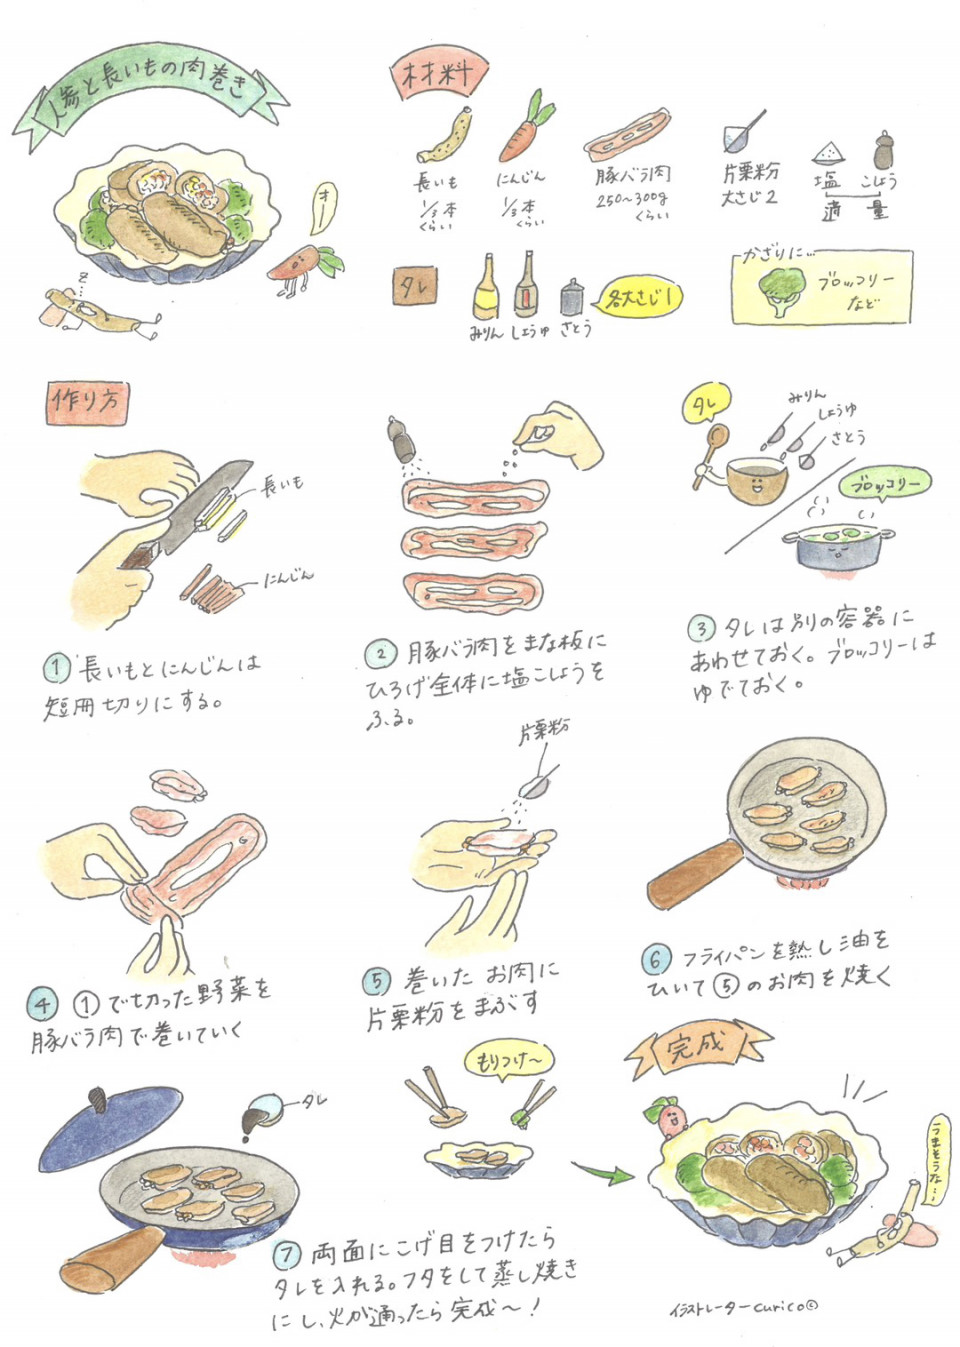 人参と長いもの肉巻き
オー
z...
材料
長いも
1/3本
くらい
にんじん
1/3本
くらい
豚バラ肉
250〜300g
くらい
片栗粉
大さじ2
塩 こしょう
適量
タレ
みりん しょうゆ さとう
各大さじ1
かざりに…
ブロッコリー
など
作り方
長いも
にんじん
① 長いもとにんじんは
短冊切りにする。
② 豚バラ肉をまな板に
ひろげ全体に塩こしょうを
ふる。
タレ
みりん
しょうゆ
さとう
ブロッコリー
③ タレは別の容器に
あわせておく。ブロッコリーは
ゆでておく。
④ ①で切った野菜を
豚バラ肉で巻いていく
片栗粉
⑤ 巻いたお肉に
片栗粉をまぶす
⑥ フライパンを熱し油を
ひいて⑤のお肉を焼く
タレ
⑦ 両面にこげ目をつけたら
タレを入れる。フタをして蒸し焼き
にし、火が通ったら完成〜!
もりつけ〜
完成
うまそうな…
イラストレーターcurico©